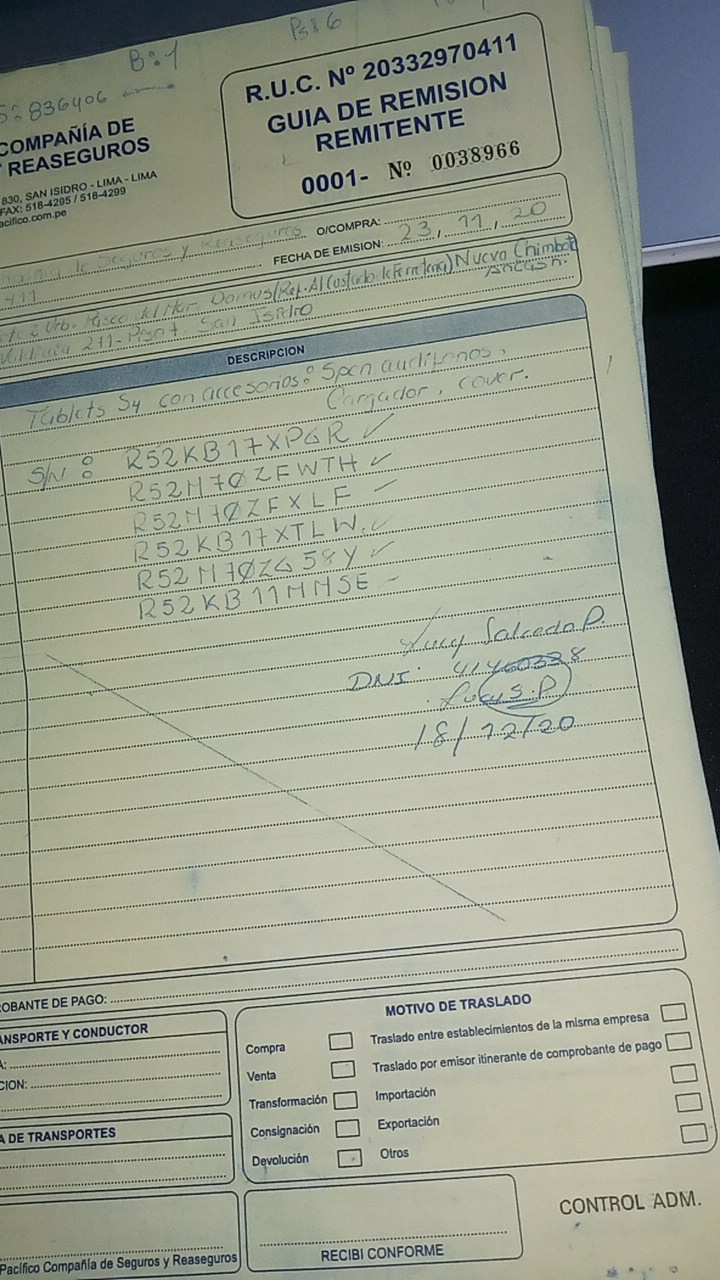 B:1
836406
COMPAÑÍA DE
REASEGUROS
830, SAN ISIDRO - LIMA - LIMA
FAX: 518-4295 / 518-4299
acifico.com.pe
R.U.C. Nº 20332970411
GUIA DE REMISION
REMITENTE
0001- Nº 0038966
de Seguros y Reaseguros O/COMPRA:
FECHA DE EMISION: 23, 11, 20
Urb. del Mar Domus (Ref. Al Costado de Ferreteria) Nuevo Chimbote
Ancash.
211- San Isidro
DESCRIPCION
Tablets S4 con accesorios: Spen audifonos,
Cargador, cover.
S/N: R52KB17XPGR ✓
R52M70ZFWTH ✓
R52M70ZFXLF
R52KB17XTLW ✓
R52M70ZG58Y ✓
R52KB11MMSE
Lucy Salcedo P.
DNI
18/12/20
OBANTE DE PAGO:
ANSPORTE Y CONDUCTOR
A:
CION:
A DE TRANSPORTES
Pacífico Compañía de Seguros y Reaseguros
MOTIVO DE TRASLADO
Compra
Venta
Transformación
Consignación
Devolución
Traslado entre establecimientos de la misma empresa
Traslado por emisor itinerante de comprobante de pago
Importación
Exportación
Otros
RECIBI CONFORME
CONTROL ADM.